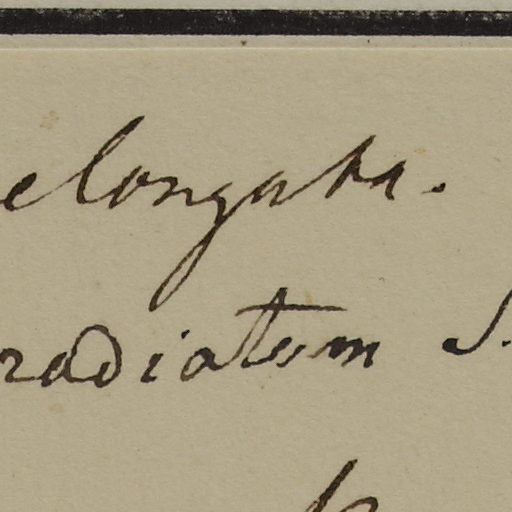 elongata.
radiatum S.